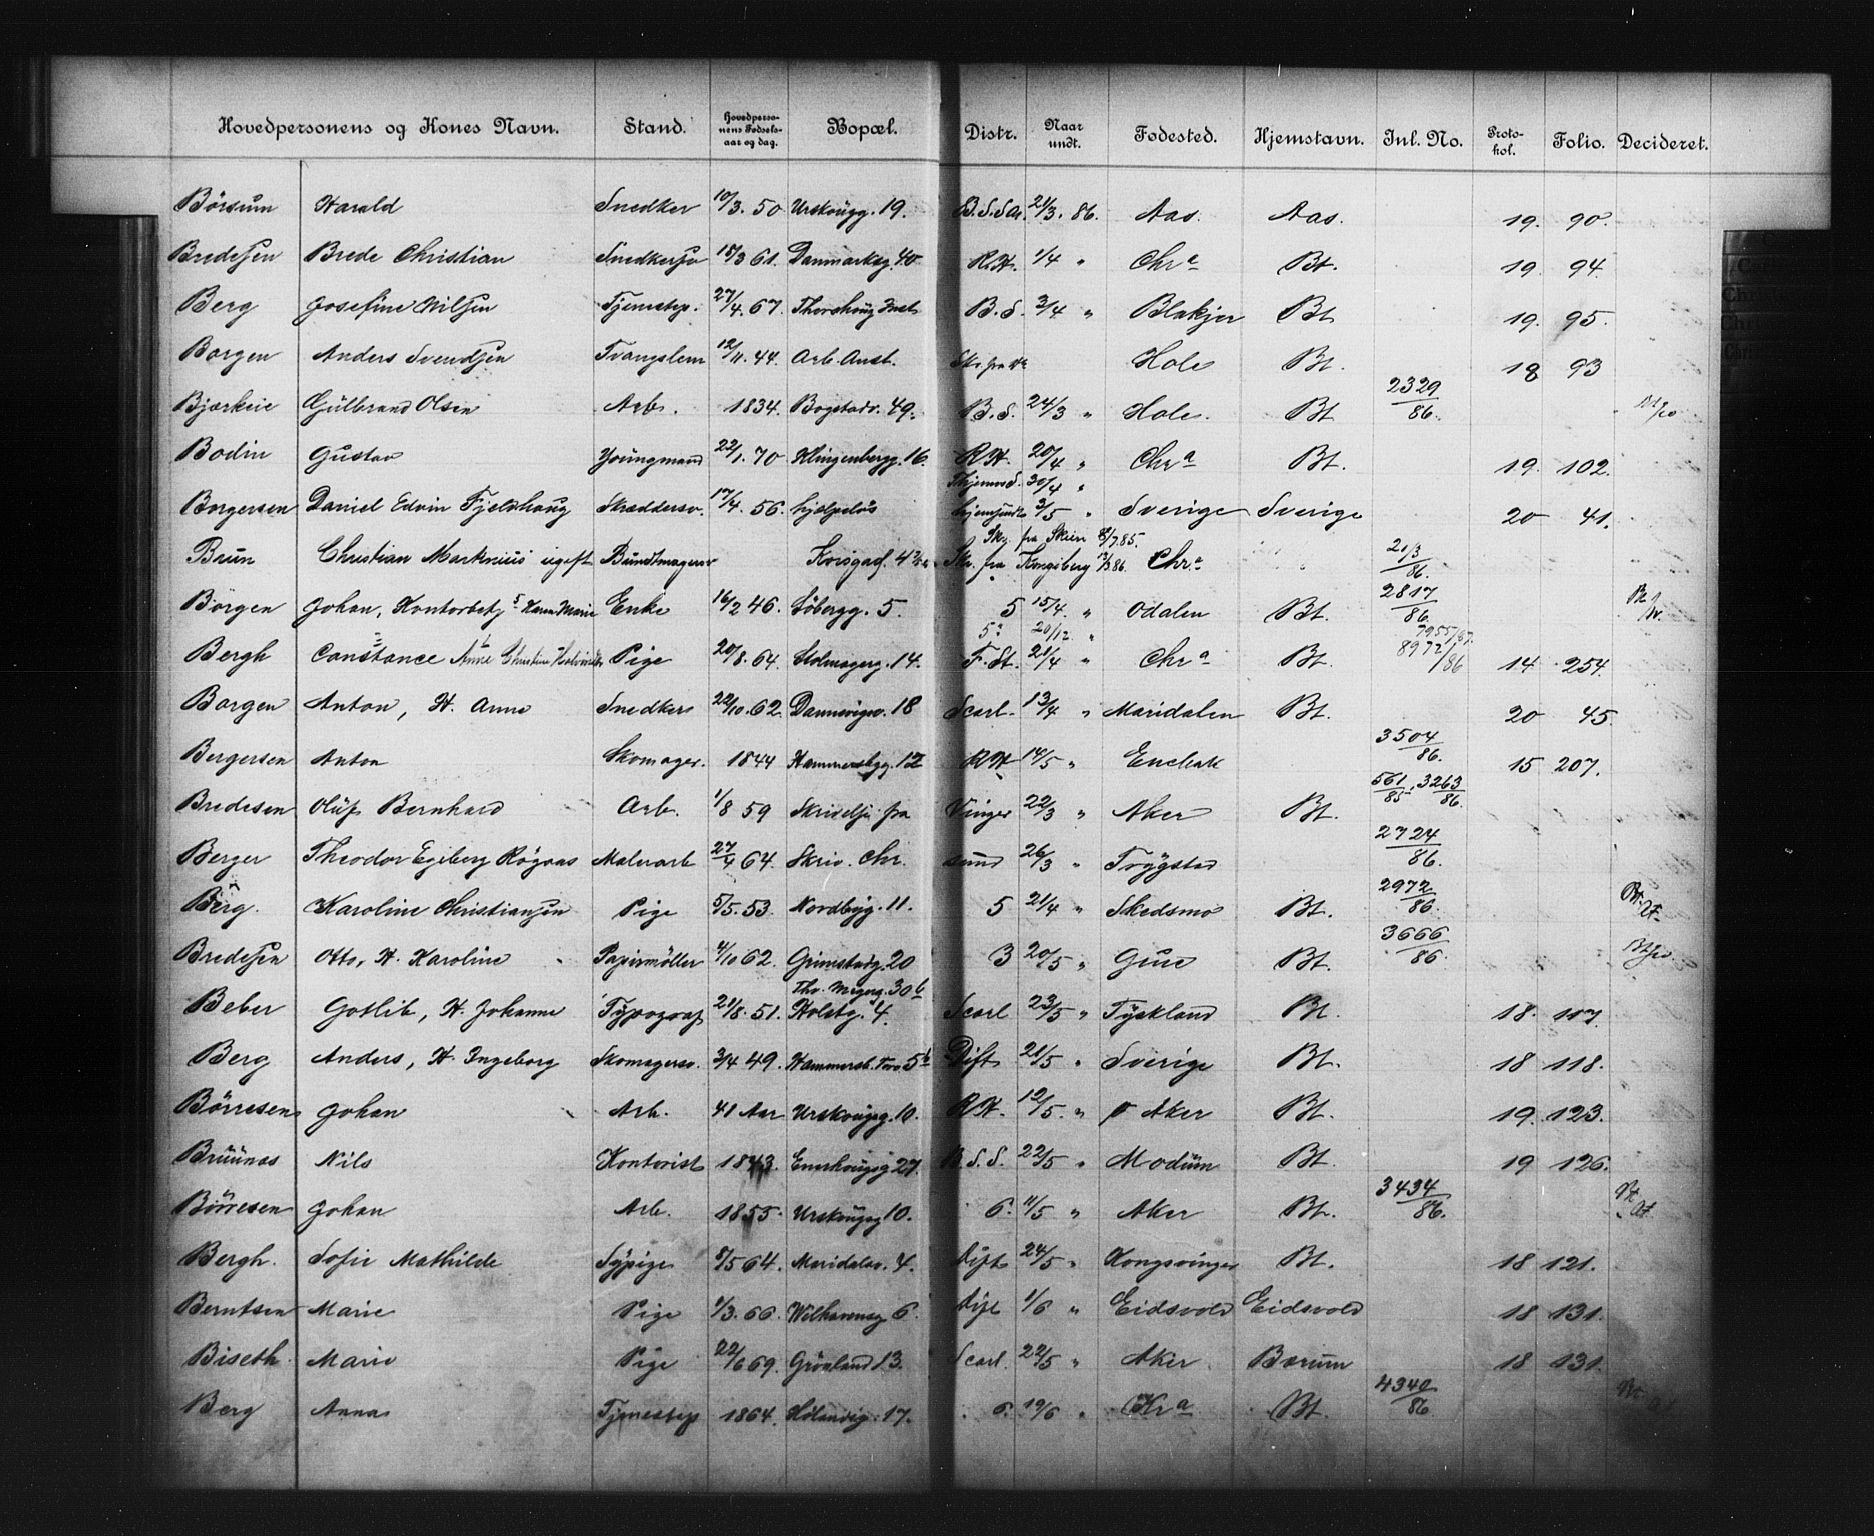 Hovedpersonens og Kones Navn. Stand. Hovedperso-nens Fødsels-aar og dag. Bopæl. Distr. Naar undt. Fødested. Hjemstavn. Inl. No. Proto-kol. Folio. Decideret.
Børsum Harald Snedker 10/3. 50 Urskougg. 19. 21/3. 86. Aas. Aas. 19. 90.
Bredesen Brede Christian 18/3 61. Danmarksg. 40 R.H. 1/4 " Chr a Bt. 19. 94
Berg Josefine Nilsen Tjenestep. 27/4. 67. B.S. 3/4 " Blakjer Bt 19. 95.
Borgen Anders Svendsen Tvangslem 12/11. 44. Arb. Anst. Hole Bt. 18 93
Bjærkeie Gulbrand Olsen Arb. 1834. Bogstadv. 49. B.S. 24/3 " Hole. Bt 2329/86.
Bodin Gustav Youngmand 22/1. 70 Klingenbergg. 16. R.H. 20/4 " Chr a Bt. 19. 102.
30/4 "
Borgersen Daniel Edvin Fjeldhaug Skræddersv. 17/4. 56. hjælpeløs 3/5 " Sverige Sverige 20 41.
Skr. fra Skien 8/7.85.
Brun Christian Markenius ugift Bundtmagersv Korsgad. 4 Skr. fra Kongsberg 13/3 86. Chr a " 21/3/86.
Børgen Johan, Kontorbetj Karen Marie Enke 16/2 46. Søbergg. 5. 5 15/4. " Odalen Bt. 2817/86.
5 20/12. " 7955/87.
Bergh Constance Anne Christine Pige 20/8. 64. Stolmagerg. 14. F. St. 21/4 " Chr a Bt. 8972/86 14 254.
Borgen Anton, H. Anne Snedkers 22/10. 62. Dannevigsv. 18 Scarl. 13/4 " Maridalen Bt. 20 45.
Bergersen Anton Skomager. 1844 Hammersbgg. 12 R.H 14/5 " Enebak 3504/86. 15 207.
Bredesen Oluf Bernhard Arb. 1/8 59 Skrivelse fra Vinger 22/3 " Aker Bt. 561/85. 3263/86.
Berger Theodor Egiberg Røgnas Malerarb 27/4 64. Skriv. Chr. sund 26/3 " Trygstad 2724/86.
Berg. Karoline Christiansen Pige 5/5. 53. Nordbyg. 11. 5 21/4 " Skedsmo Bt. 2972/86.
Bredesen Otto, H. Karoline Papirmøller 4/10 62. Grimstadg. 20 3 20/5 " Gjue Bt. 3666/86.
Tho. Meyersg. 30 b
Beber Gotlib, H. Johanne Typograf 21/8. 51. Holstg. 4. Scarl 23/5 " Tyskland Bt. 18. 117.
Berg Anders, H. Ingeborg Skomagersv. 3/4 49. Hammersb. Torv 5 b Dift 21/5 " Sverige Bt. 18 118.
Børresen Johan Arb. 41 Aar Urskougsg. 10. R.H. 12/5. " Aker Bt. 19. 123.
Bruunæs Nils Kontorist 1843. Enerhougsg 27 B.S.S. 22/5 " Modum Bt. 19 126.
Børresen Johan Arb. 1855. Urskougsg 10. 6. 11/5 " Aker Bt. 3434/86.
Bergh. Sofie Mathilde Sypige 8/5 64. Maridalsv. 4. Dift 24/5 " Kongsvinger Bt. 18 121.
Berntsen Marie Pige 1/3. 66. 6. Dift 1/6 " Eidsvold Eidsvold 18 131.
Biseth Marie Pige 22/6 69. Grønland 13. Scarl. 22/5 " Aker Bærum 18 131.
Berg Anna Tjenestep 1864. 17. 6. 19/6 " Kr a Bt. 4340/86